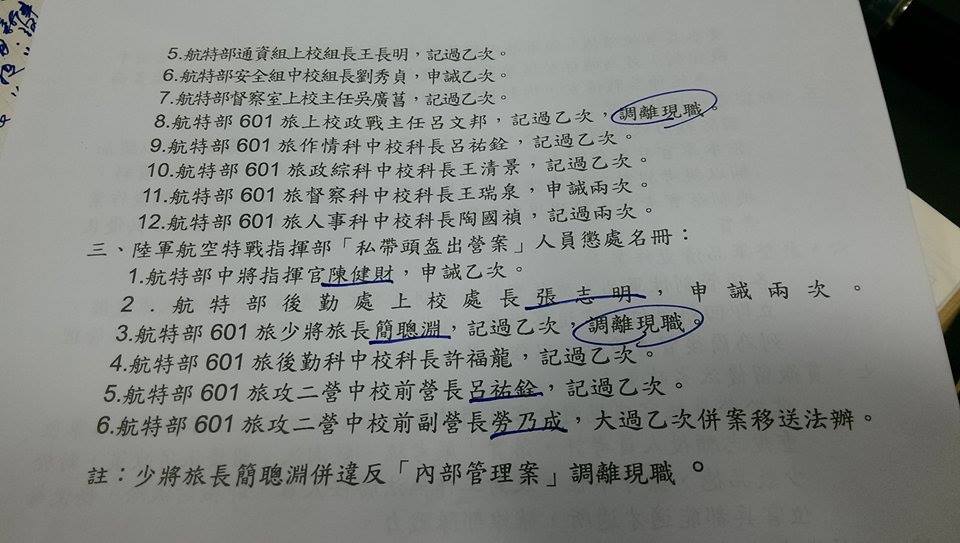 5.航特部通資組上校組長王長明，記過乙次。
6.航特部安全組中校組長劉秀貞，申誡乙次。
7.航特部督察室上校主任吳廣菖，記過乙次。
8.航特部 601 旅上校政戰主任呂文邦，記過乙次，調離現職。
9.航特部 601 旅作情科中校科長呂祐銓，記過乙次。
10.航特部 601 旅政綜科中校科長王清景，記過乙次。
11.航特部 601 旅督察科中校科長王瑞泉，申誡兩次。
12.航特部 601 旅人事科中校科長陶國禎，記過兩次。
三、陸軍航空特戰指揮部「私帶頭盔出營案」人員懲處名冊：
1.航特部中將指揮官陳健財，申誡乙次。
2.航特部後勤處上校處長張志明，申誡兩次。
3.航特部 601 旅少將旅長簡聰淵，記過乙次，調離現職。
4.航特部 601 旅後勤科中校科長許福龍，記過乙次。
5.航特部 601 旅攻二營中校前營長呂祐銓，記過乙次。
6.航特部 601 旅攻二營中校前副營長勞乃成，大過乙次併案移送法辦。
註：少將旅長簡聰淵併違反「內部管理案」調離現職。